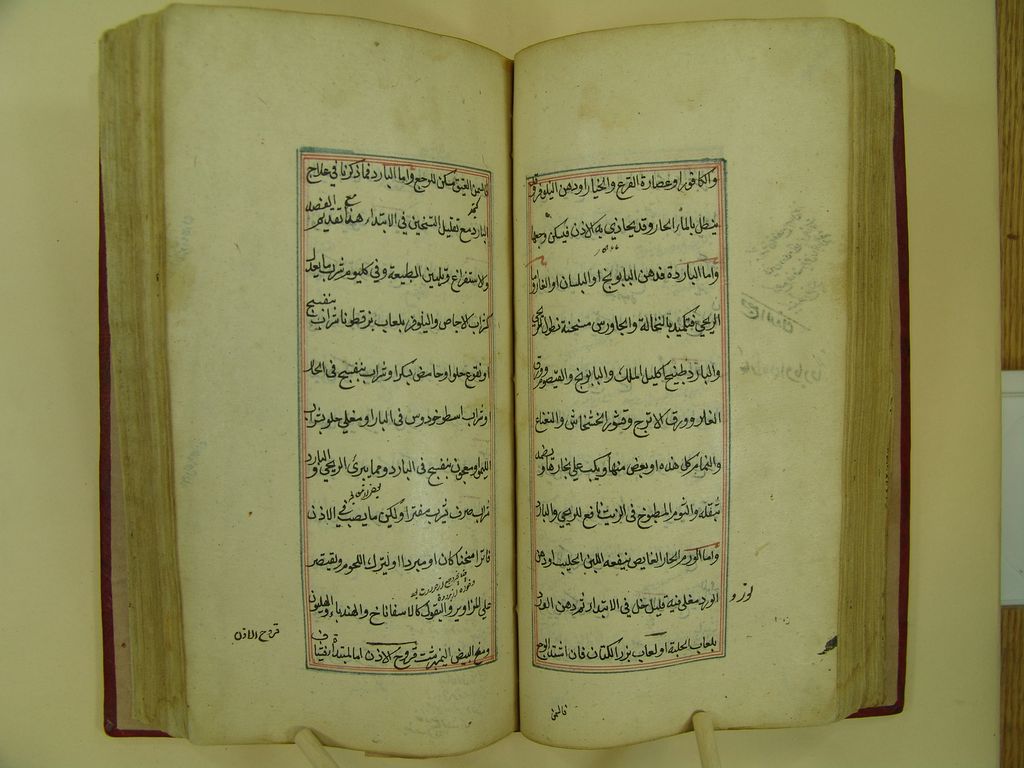 والكافور او عصارة القرع والخيار او دهن النيلوفر
بالماء الحار وقد يحاذي به الاذن فيسكن وجعها
واما الباردة فدهن البابونج او البلسان او الغار واما
الريحي فتكميد بالنخالة والجاورس مسخنة
والبارد طبيخ اكليل الملك والبابونج والقيصوم وورق
الغار وورق الاترج وقشور الخشخاش والنعناع
والنمام كل هذه او بعض منها ويكب على بخارها
بثفله والثوم المطبوخ في الزيت نافع للريحي والبارد
واما الورم الحار الغايص ينفعه اللبن الحليب او دهن
الورد مغلى فيه قليل خل في الابتداء ثم دهن
بلعاب الحلبة او لعاب بزر الكتان فان اشتد الوجع
فالسمن
العتيق مسكن للوجع واما البارد فما ذكرنا في علاج
البارد مع تقليل التسخين في الابتداء هذا بعد تقديم الفصد
والاستفراغ وتليين الطبيعة وفي كل يوم شراب ما يعدل
كشراب الاجاص والنيلوفر بلعاب بزرقطونا شراب بنفسج
او نقوع حلو او حامض بسكر او شراب بنفسج في الحار
او شراب اسطوخودوس في البارد او مغلي حلو بشراب
الليمو او معجون بنفسج في البارد ومما يبرئ الريحي والبارد
شراب صرف وليكن ما يصب في الاذن
فاترا مسخنا كان او مبردا وليترك اللحوم ويقتصر
على المزاوير والبقول كالاسفاناخ والهندباء والهليون
ومخ البيض النيمرشت قروح الاذن اما المبتداة
قروح الاذن